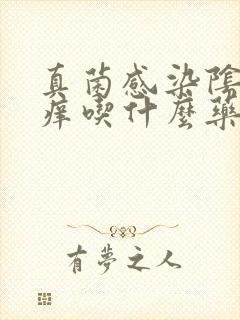 真菌感染陰
痒喫什麼藥
有夢之人